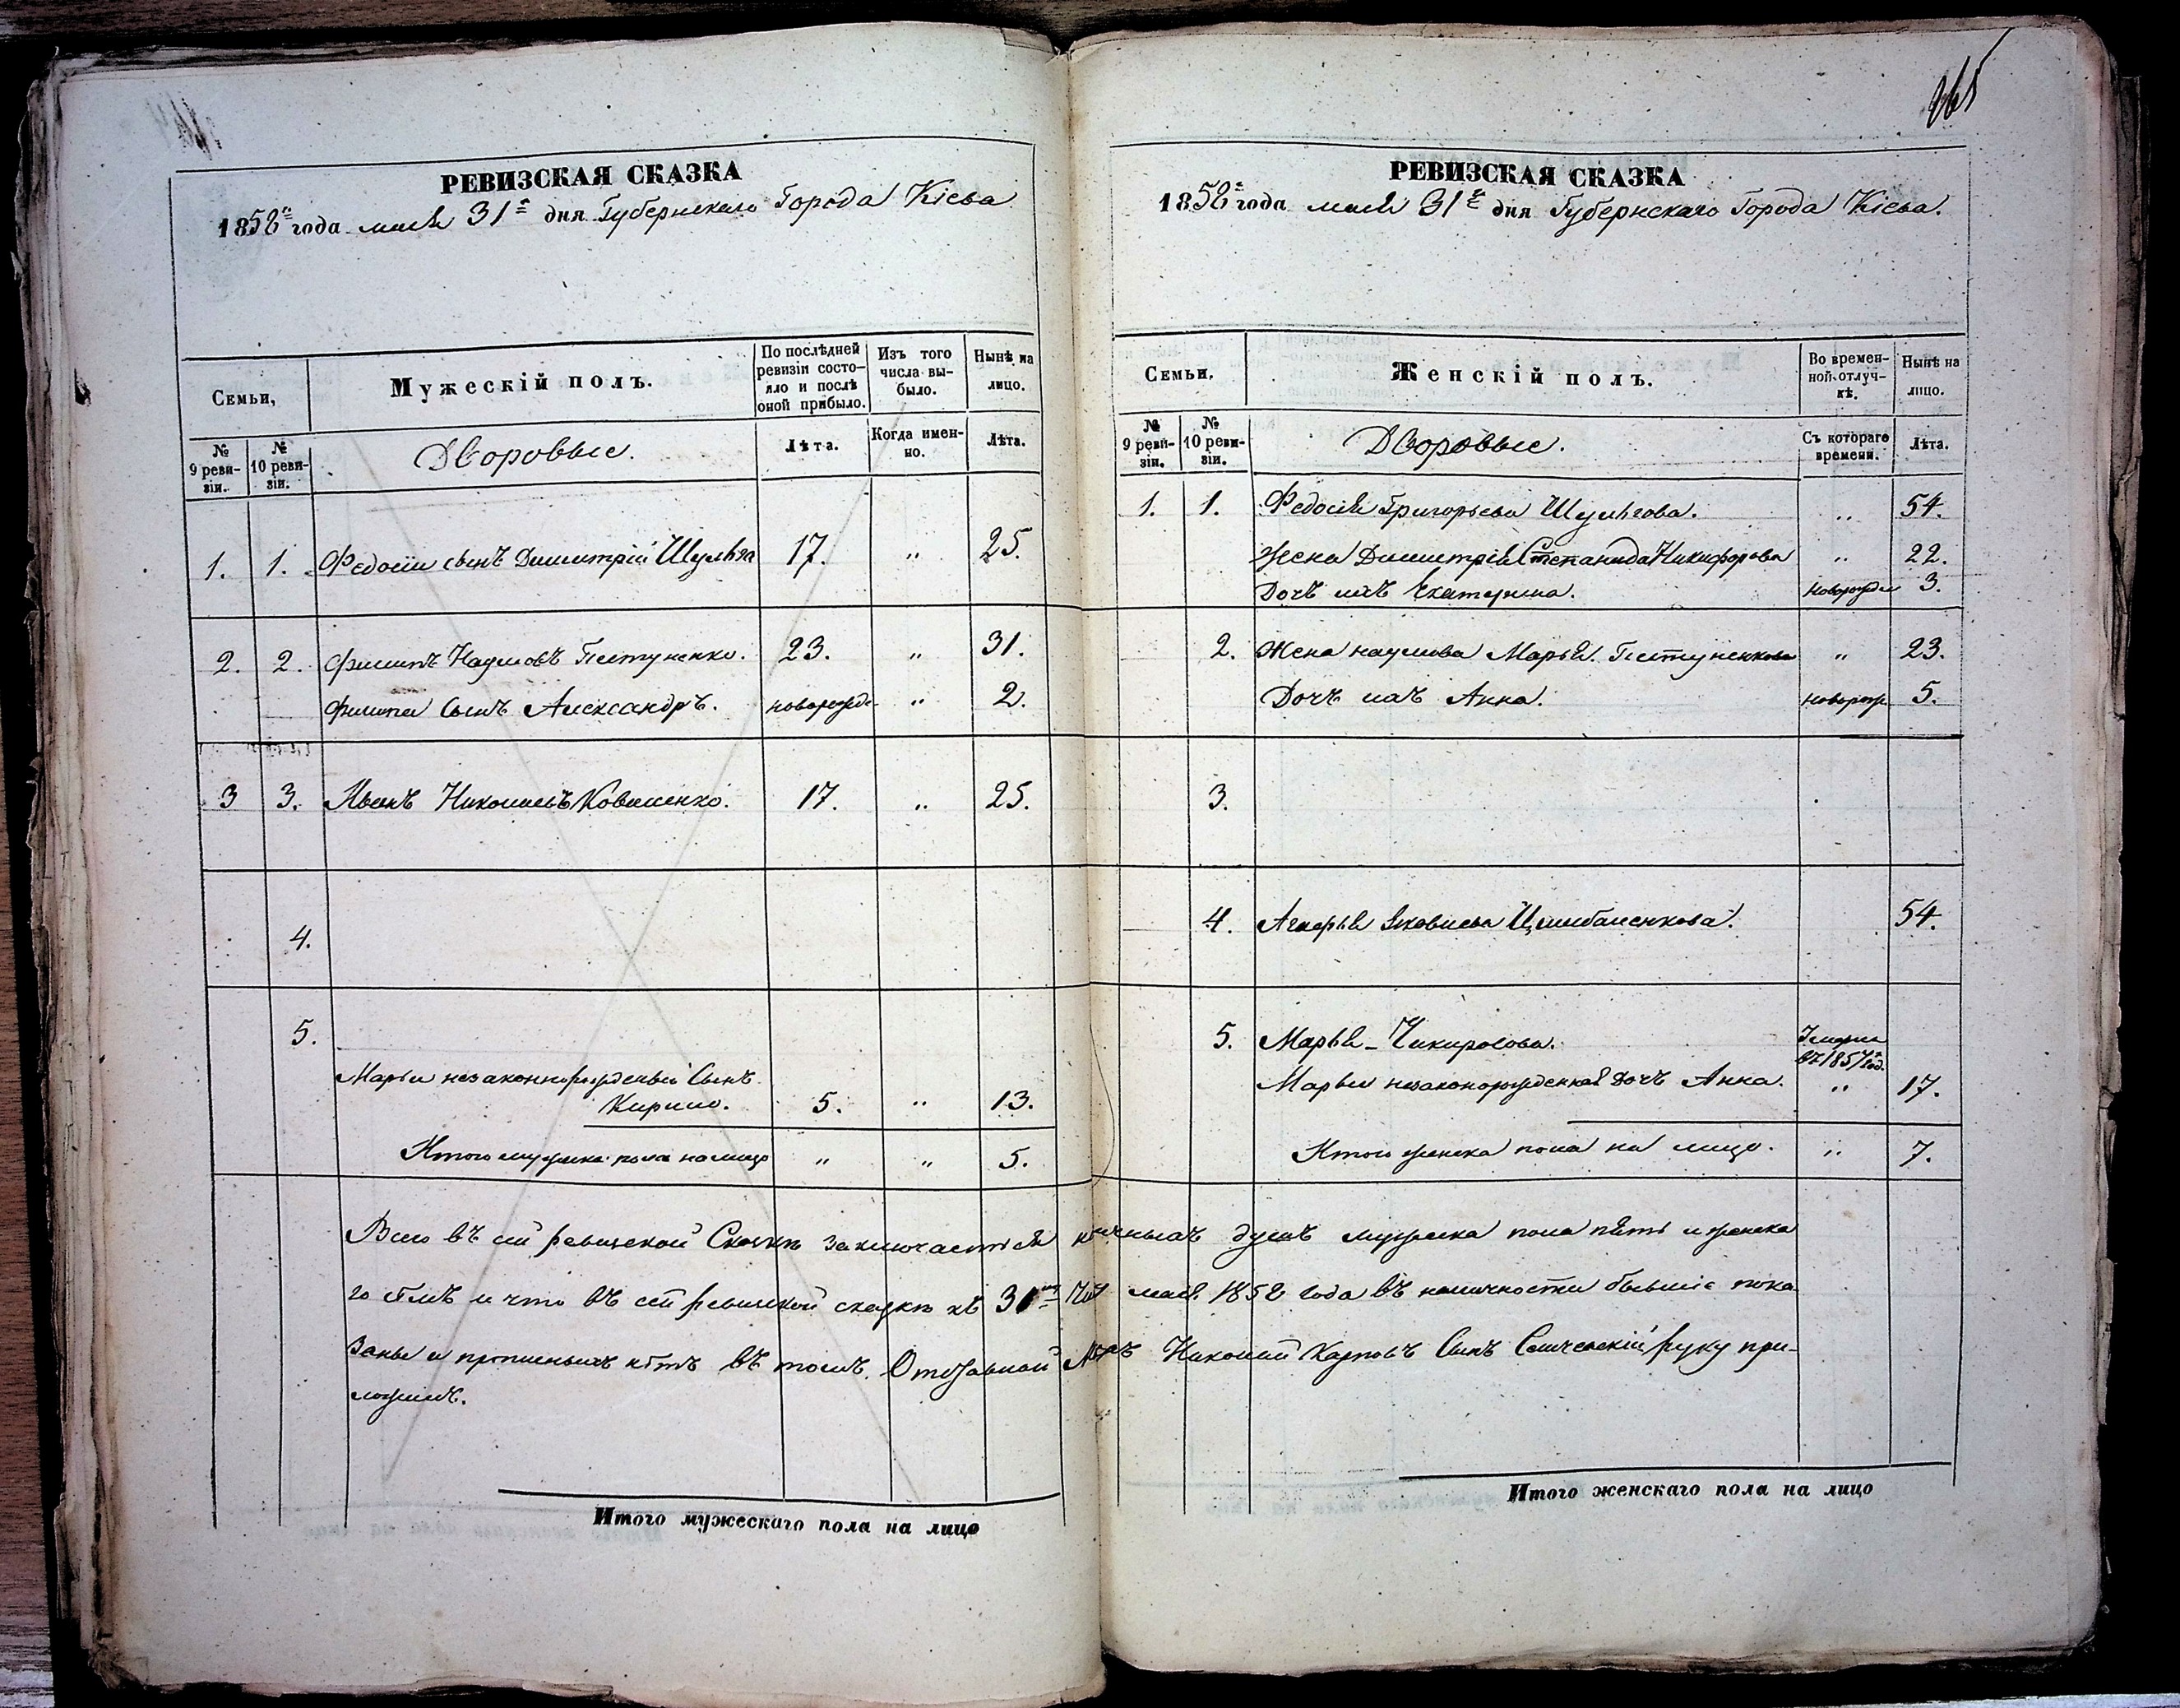 РЕВИЗСКАЯ СКАЗКА
1858го года мая 31го дня Губернскаго Города Кіева
Семьи,
Мужескій полъ.
По послѣдней ревизіи состояло и послѣ оной прибыло.
Изъ того числа выбыло.
Нынѣ на лицо.
№ 9 ревизіи.
№ 10 ревизіи.
Дворовые.
Лѣта.
Когда именно.
Лѣта.
1. 1. Федосіи сынъ Димитрій Шульга 17. „ 25.
2. 2. Филипъ Наумовъ Пстуненко. 23. „ 31.
Филипа Сынъ Александръ. новорожде. „ 2.
3 3. Иванъ Николаевъ Коваленко. 17. „ 25.
4.
5.
Марьи незаконнорожденый Сынъ
Кирило. 5. „ 13.
Итого мужеска пола налицо „ „ 5.
Итого мужескаго пола на лицо
265
РЕВИЗСКАЯ СКАЗКА
1858го года мая 31го дня Губернскаго Города Кіева.
Семьи.
Женскій полъ.
Во временной отлучкѣ.
Нынѣ на лицо.
№ 9 ревизіи.
№ 10 ревизіи.
Дворовые.
Съ котораго времени.
Лѣта.
1. 1. Федосія Григорьева Шульгова. „ 54.
Жена Димитрія Степанида Никифорова „ 22.
Дочь ихъ Екатерина. новорожден 3.
2. Жена наумова Марья „ 23.
Дочь ихъ Анна. новорож 5.
3.
4. Агафья Яковлева Цимбаленкова. 54.
5. Марья Чикирсова. Умерла въ 1857 год.
Марьи незаконорожденная Дочь Анна. „ 17.
Итого женска пола на лицо. „ 7.
Всего въ сей ревизской Сказкѣ заключается наличныхъ душъ мужеска пола пять и женска
го семь и что въ сей ревизской сказкѣ къ 31му Чи мая 1858 года въ наличности бывшіе пока
заны и прописныхъ нѣтъ въ томъ. Отставной Николай Карповъ Сынъ руку при-
ложилъ.
Итого женскаго пола на лицо